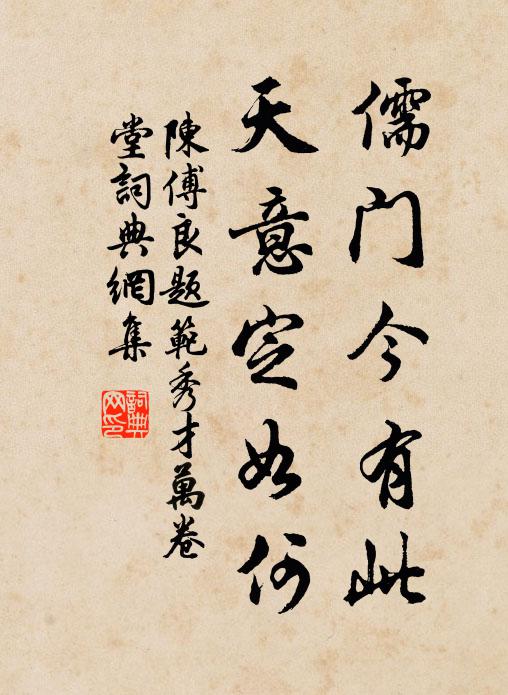 儒门今有此
天意定如何
陳傅良题範秀才萬卷
堂詞典網集
詞典网印